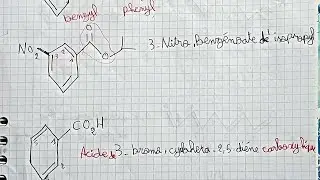 benzyl phenyl
O
NO₂ O 3-Nitro, Benzénoate de isopropyl
3 2 1
CO₂H
Acide 3-bromo, cyclohexa-2,5-diène carboxylique
1
2